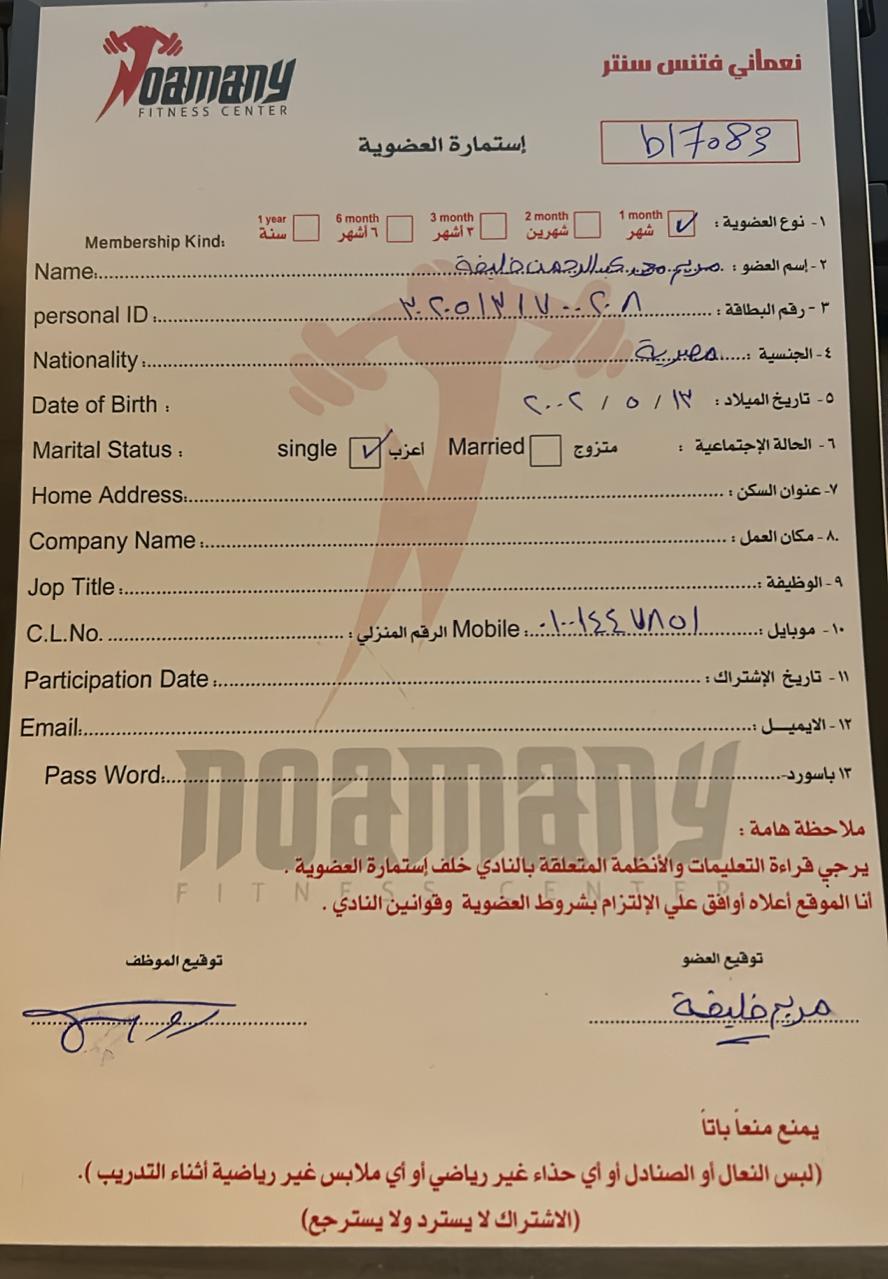 NOAMANY
FITNESS CENTER
نعماني فتنس سنتر
إستمارة العضوية
b17083
١- نوع العضوية : شهر 1 month ✓ شهرين 2 month ٣ أشهر 3 month ٦ أشهر 6 month سنة 1 year Membership Kind:
٢- إسم العضو : مريم محمد عبدالرحمن خليفة Name:
٣- رقم البطاقة : personal ID :
٤- الجنسية : مصرية Nationality :
٥- تاريخ الميلاد : ١٣ / ٥ / ٢٠٠٢ Date of Birth :
٦- الحالة الإجتماعية : متزوج Married أعزب ✓ single Marital Status :
٧- عنوان السكن : Home Address:
٨- مكان العمل : Company Name :
٩- الوظيفة : Jop Title :
١٠- موبايل : ٠١٠٠١٤٤٧٨٥١ Mobile : الرقم المنزلي : C.L.No.
١١- تاريخ الإشتراك : Participation Date :
١٢- الايميل : Email:
١٣ باسورد- Pass Word:
NOAMANY
FITNESS CENTER
ملاحظة هامة :
يرجي قراءة التعليمات والأنظمة المتعلقة بالنادي خلف إستمارة العضوية .
أنا الموقع أعلاه أوافق علي الإلتزام بشروط العضوية وقوانين النادي .
توقيع العضو توقيع الموظف
مريم خليفة
يمنع منعاً باتاً
(لبس النعال أو الصنادل أو أي حذاء غير رياضي أو أي ملابس غير رياضية أثناء التدريب ).
(الاشتراك لا يسترد ولا يسترجع)